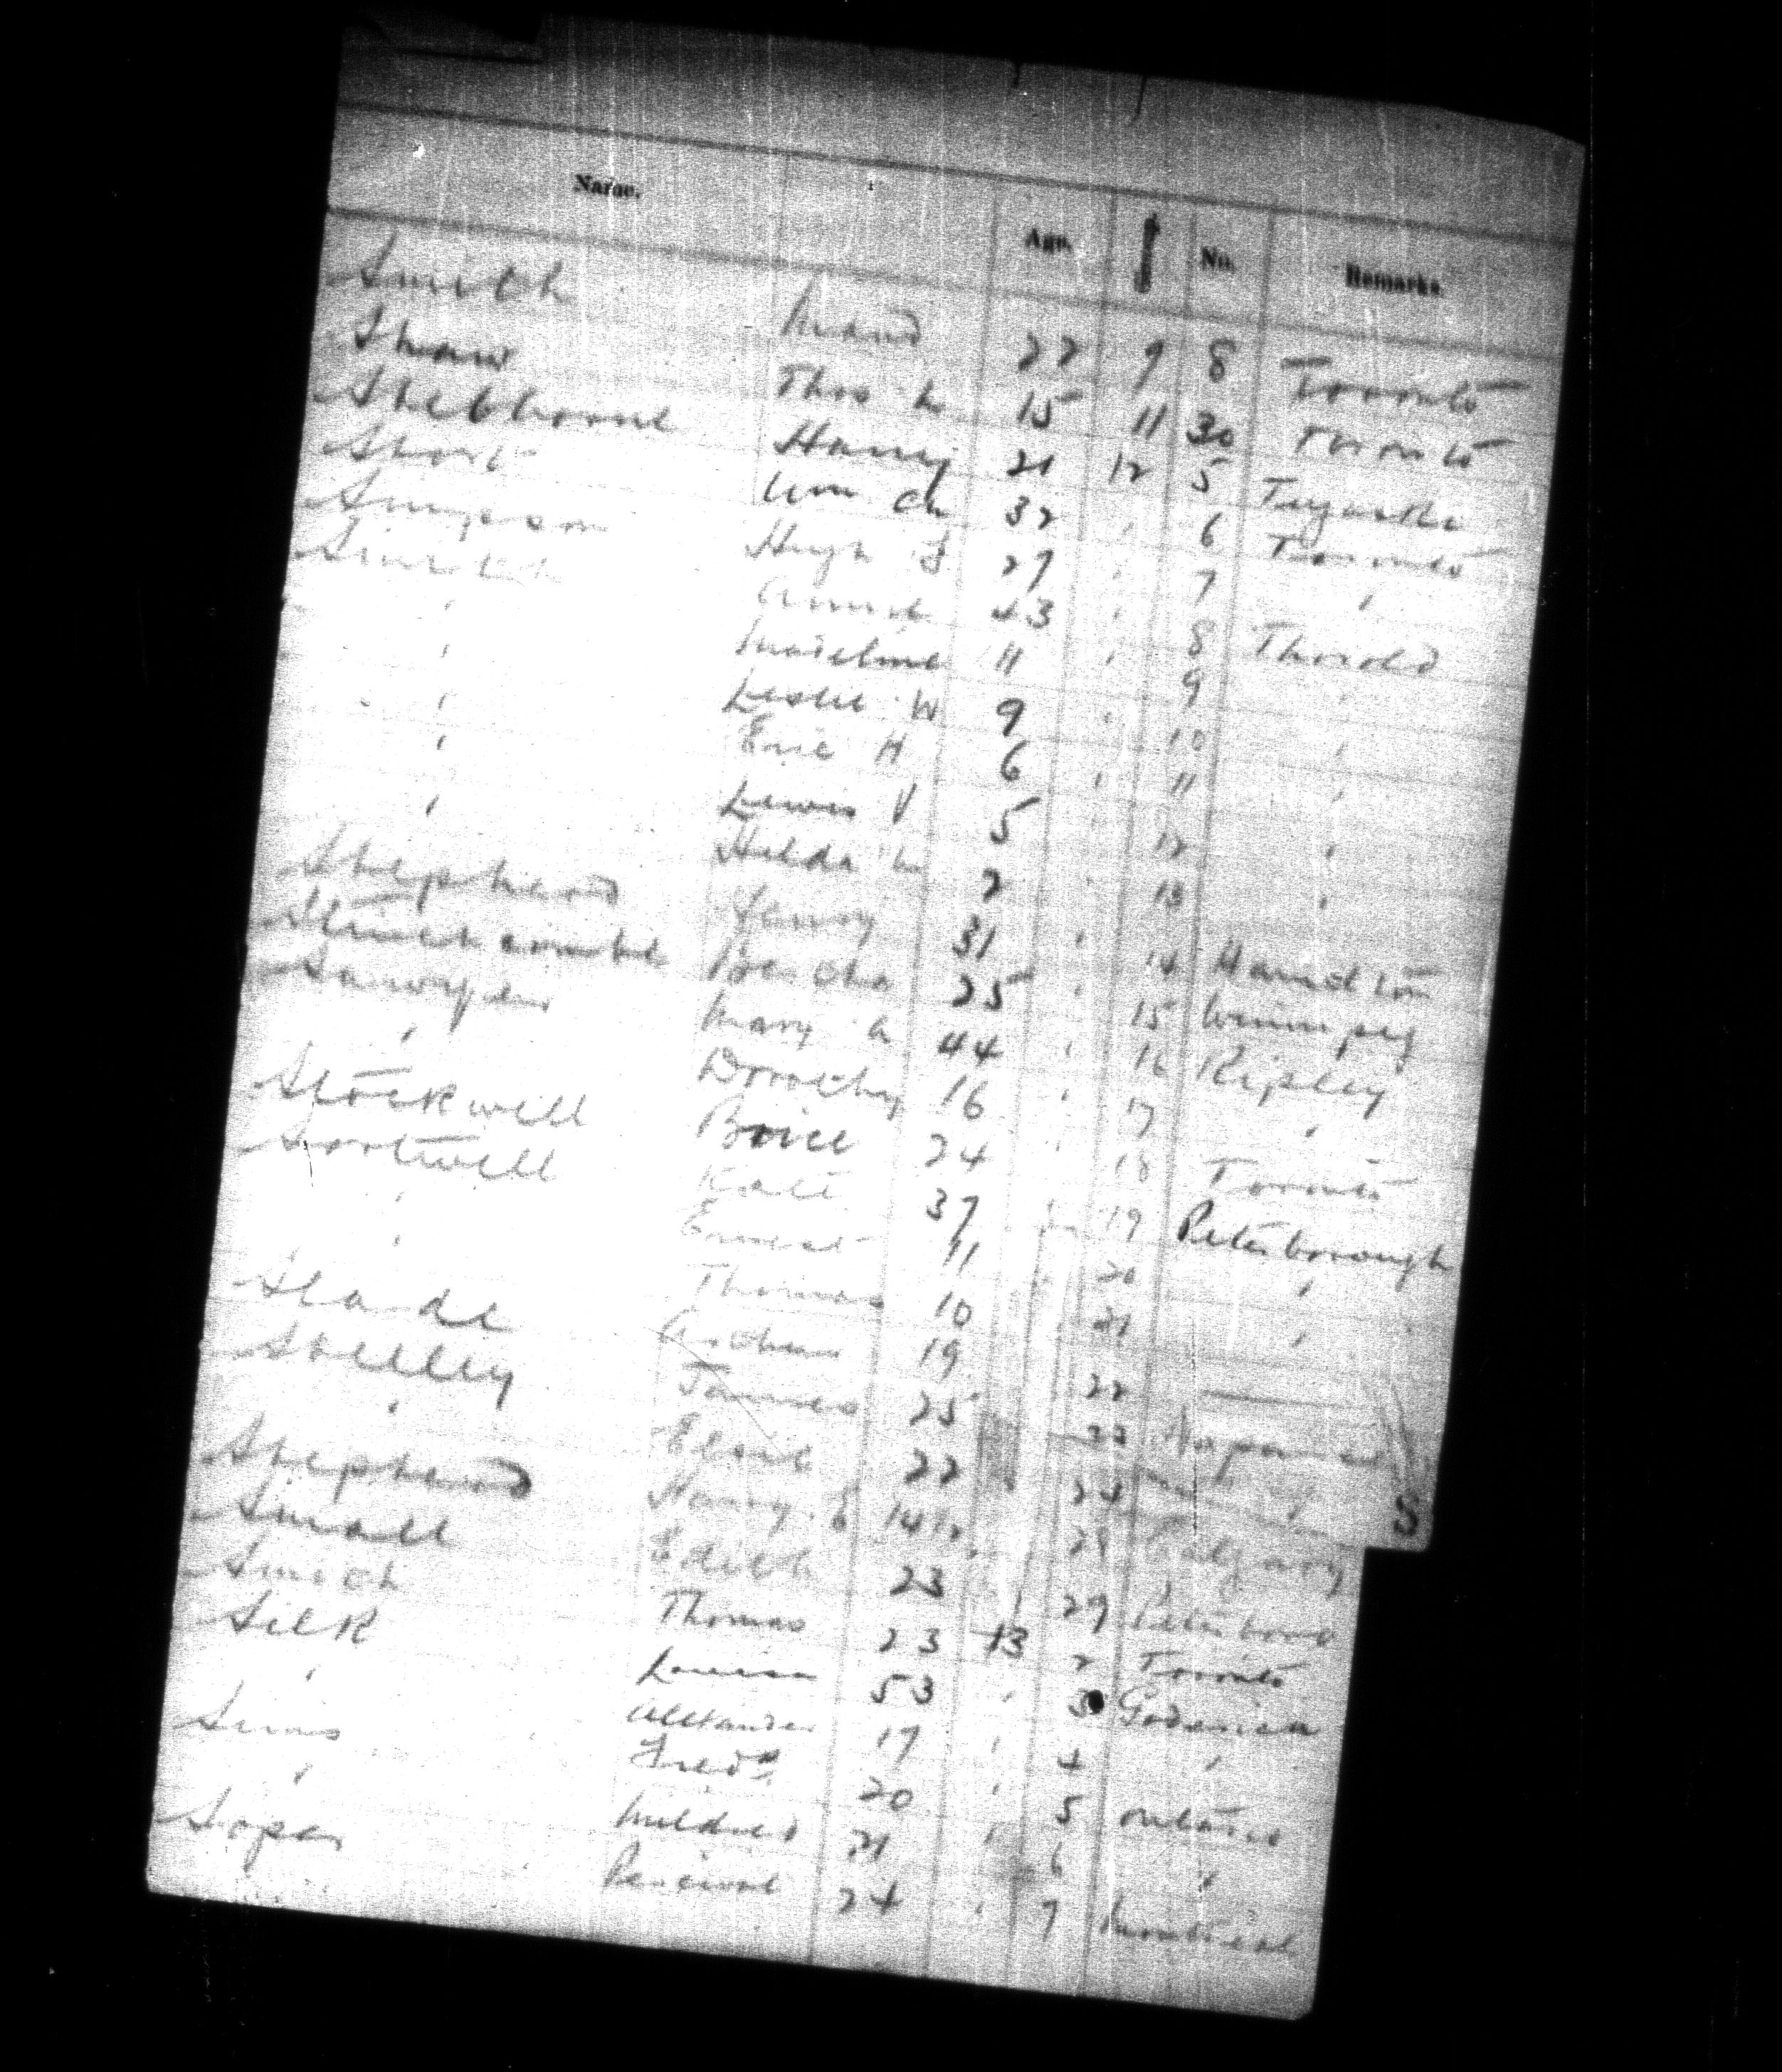 Name. Age. No. Remarks.
Smith Maud 22 9 8 Toronto
Shaw Thos 15 11 30 Toronto
Shebborne Harry 21 12 5
Short Wm Ch 32 " 6 Toronto
Simpson Hugh F 27 " 7 "
Annie 43 " 8 Thorold
" Madeline 11 " 9 "
" Leslie W 9 " 10 "
" Eric H 6 " 11 "
" Lewis V 5 " 12 "
" Hilda M 2 " 13 "
Shepherd Fanny 31 " 14 Hamilton
Stinchcombe Bertha 25 " 15 Winnipeg
Sawyer Mary A 44 " 16 Ripley
" Dorothy 16 " 17 "
Stockwell 24 " 18 Toronto
Sootwell Kate 37 " 19 Peterborough
" Ernest 11 " 20 "
" Thomas 10 " 21 "
Slade Arthur 19 22 —
Skelley James 25 23 Napanee
" Elsie 22 24 "
Shepherd Harry E 14 Calgary
Small Edith 23 " 29 Peterboro
Smith Thomas 23 13 2 Toronto
Silk Louisa 53 " 3 Goderich
" Alexander 17 " 4 "
Sims Fredk 20 " 5 Ontario
" Mildred 21 " 6 "
Soper Percival 24 " 7 Montreal
S